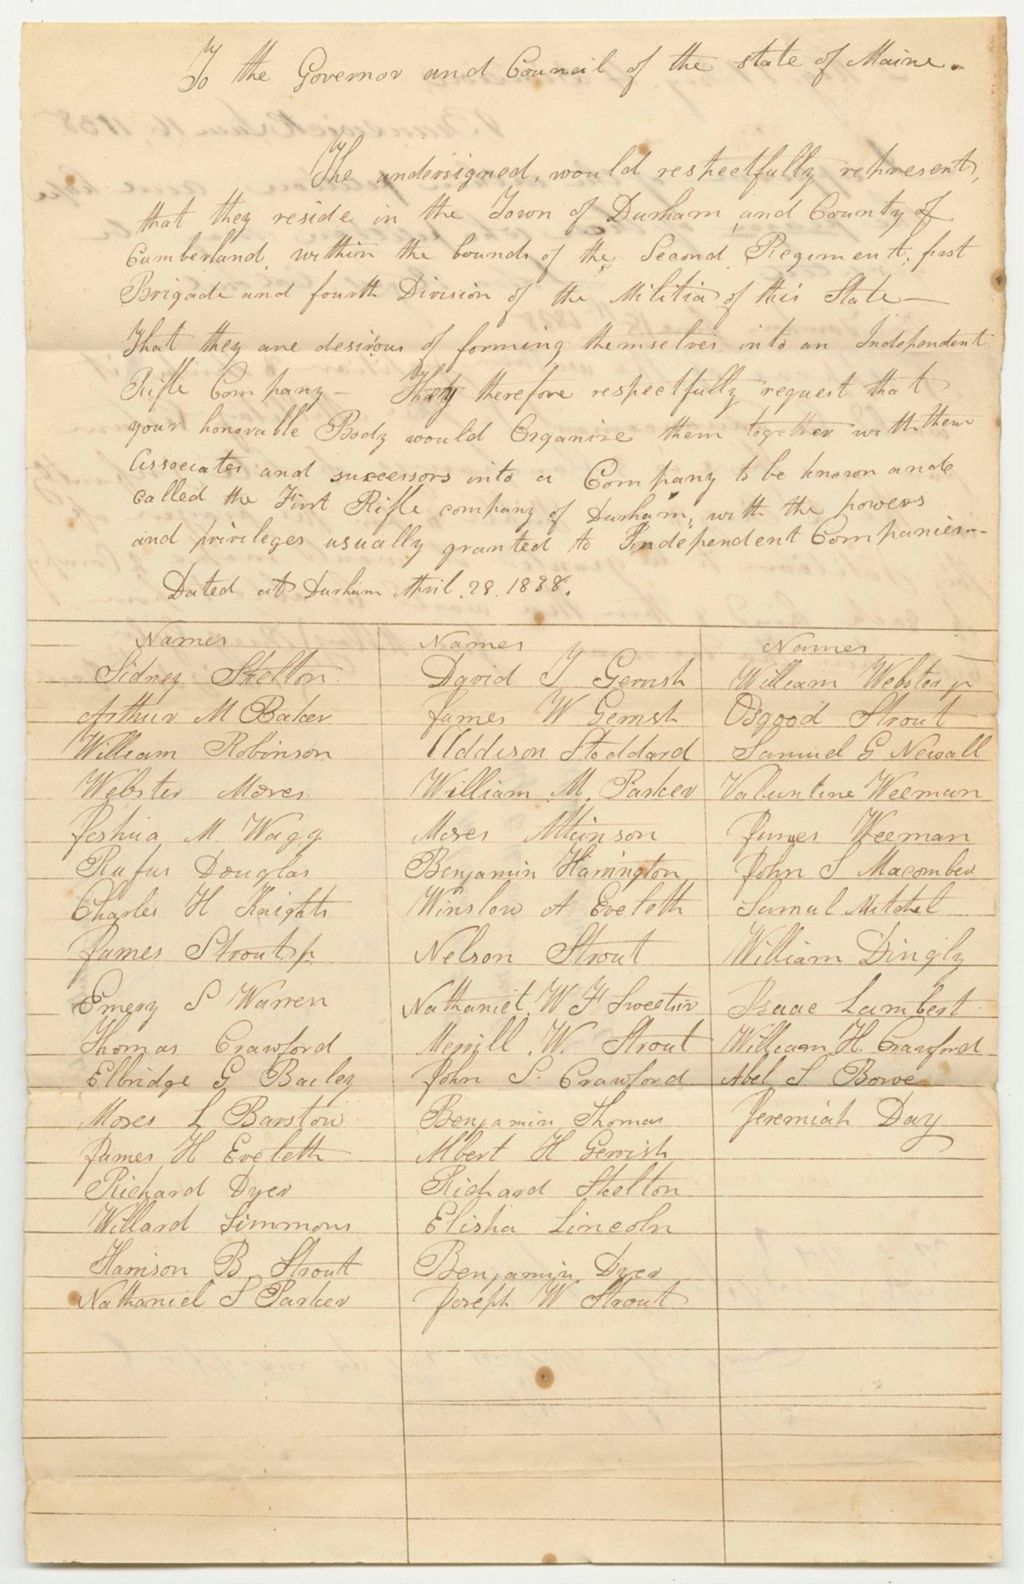 To the Governor and Council of the state of Maine.
The undersigned, would respectfully represent,
that they reside in the Town of Durham, and County of
Cumberland, within the bounds of the Second Regiment, first
Brigade and fourth Division of the Militia of this State—
That they are desirous of forming themselves into an Independent
Rifle Company— They therefore respectfully request that
your honorable Body would Organize them together with their
associates and successors into a Company to be known and
called the First Rifle company of Durham, with the powers
and privileges usually granted to Independent Companies—
Dated at Durham April. 28. 1838.
Names
Sidney Skelton
Arthur M Baker
William Robinson
Webster Moses
Joshua M Wagg
Rufus Douglas
Charles H Knights
James Strout jr
Emery S Warren
Thomas Crawford
Elbridge G Bailey
Moses L Barstow
James H Eveleth
Richard Dyer
Willard Simmons
Harrison B Strout
Nathaniel S Parker
Names
David T Gerrish
James W Gerrish
Addison Stoddard
William M. Parker
Moses Atkinson
Benjamin Harrington
Winslow A Eveleth
Nelson Strout
Nathaniel W F Sweetsir
Merrill W. Strout
John S. Crawford
Benjamin Thomas
Albert H Gerrish
Richard Skelton
Elisha Lincoln
Benjamin Dyer
Joseph W Strout
Names
William Webster jr
Osgood Strout
Samuel G Newall
Valuntine Weeman
James Weeman
John S Macomber
Samul Mitchel
William Dingly
Isaac Lambert
William H. Crawford
Abel S Bowe
Jeremiah Day